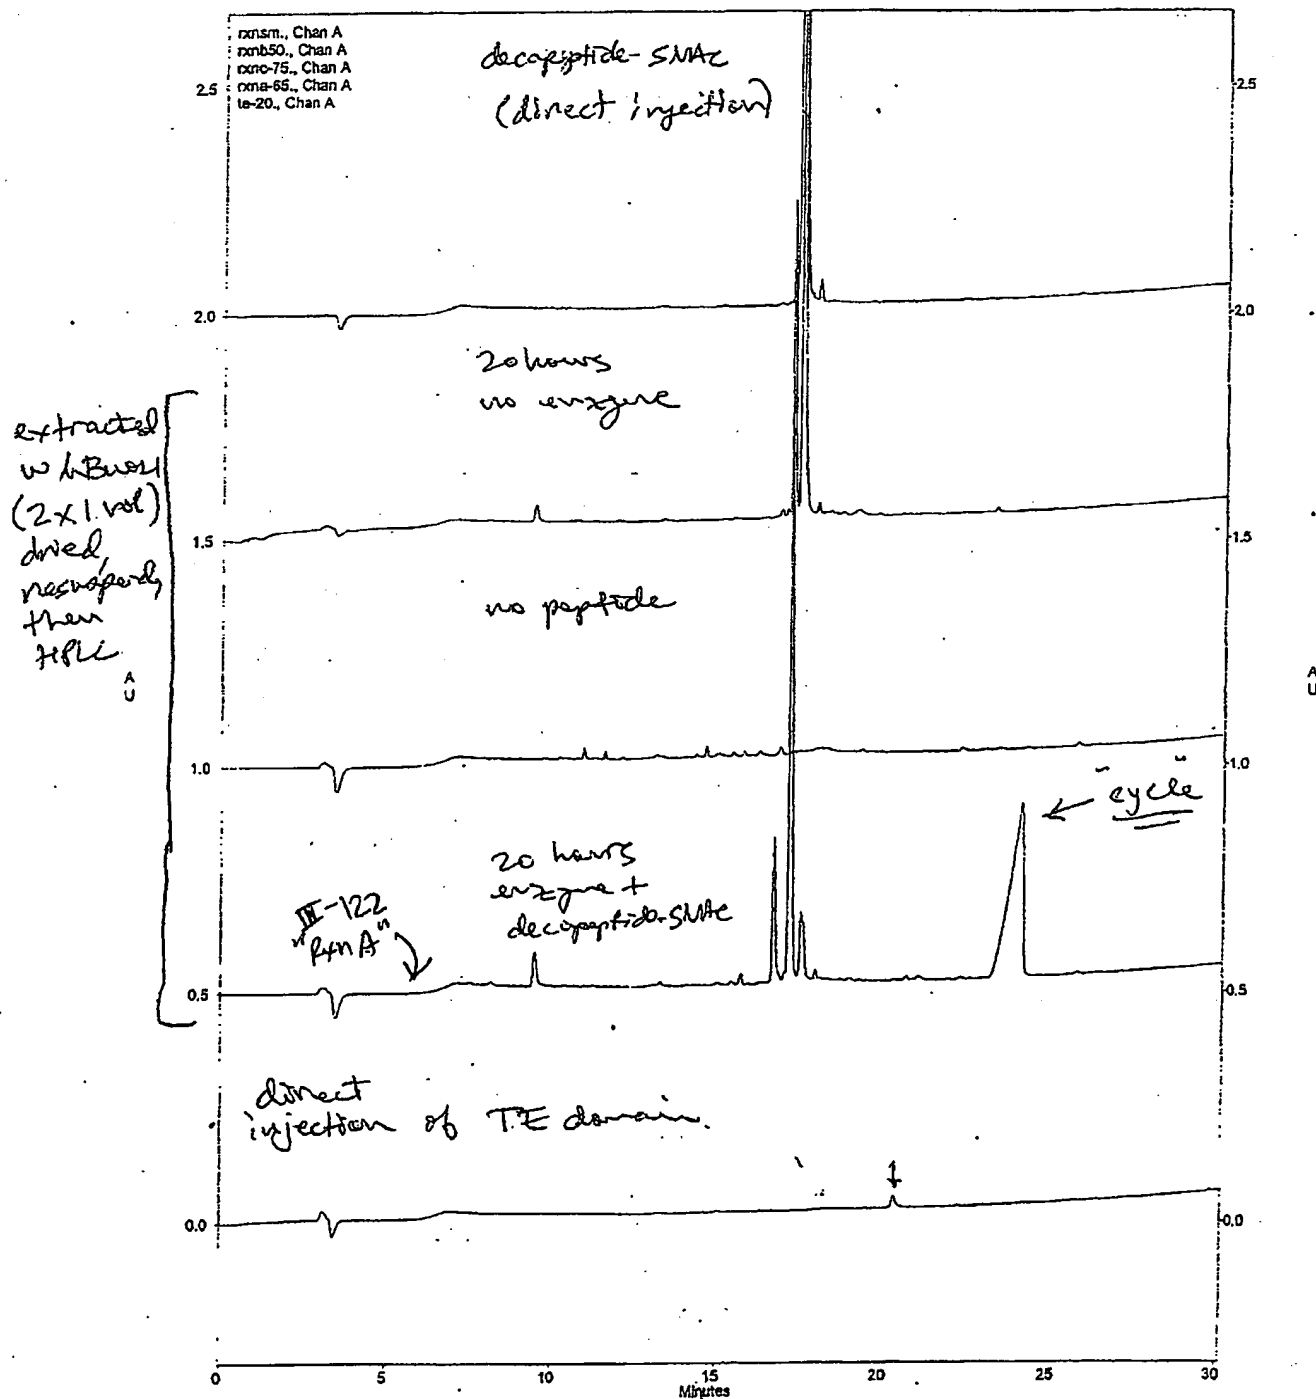 rxnsm., Chan A
rxnb50., Chan A
rxnc-75., Chan A
rxna-65., Chan A
te-20., Chan A
decapeptide-SNAc
(direct injection)
2.5
2.5
2.0
2.0
20 hours
no enzyme
extracted
w nBuOH
(2x1 vol)
dried,
resuspend,
then
HPLC
1.5
1.5
no peptide
A
U
A
U
1.0
1.0
"cycle"
20 hours
enzyme +
decapeptide-SNAc
III-122
"Rxn A"
0.5
0.5
direct
injection of TE domain.
0.0
0.0
0
5
10
15
20
25
30
Minutes